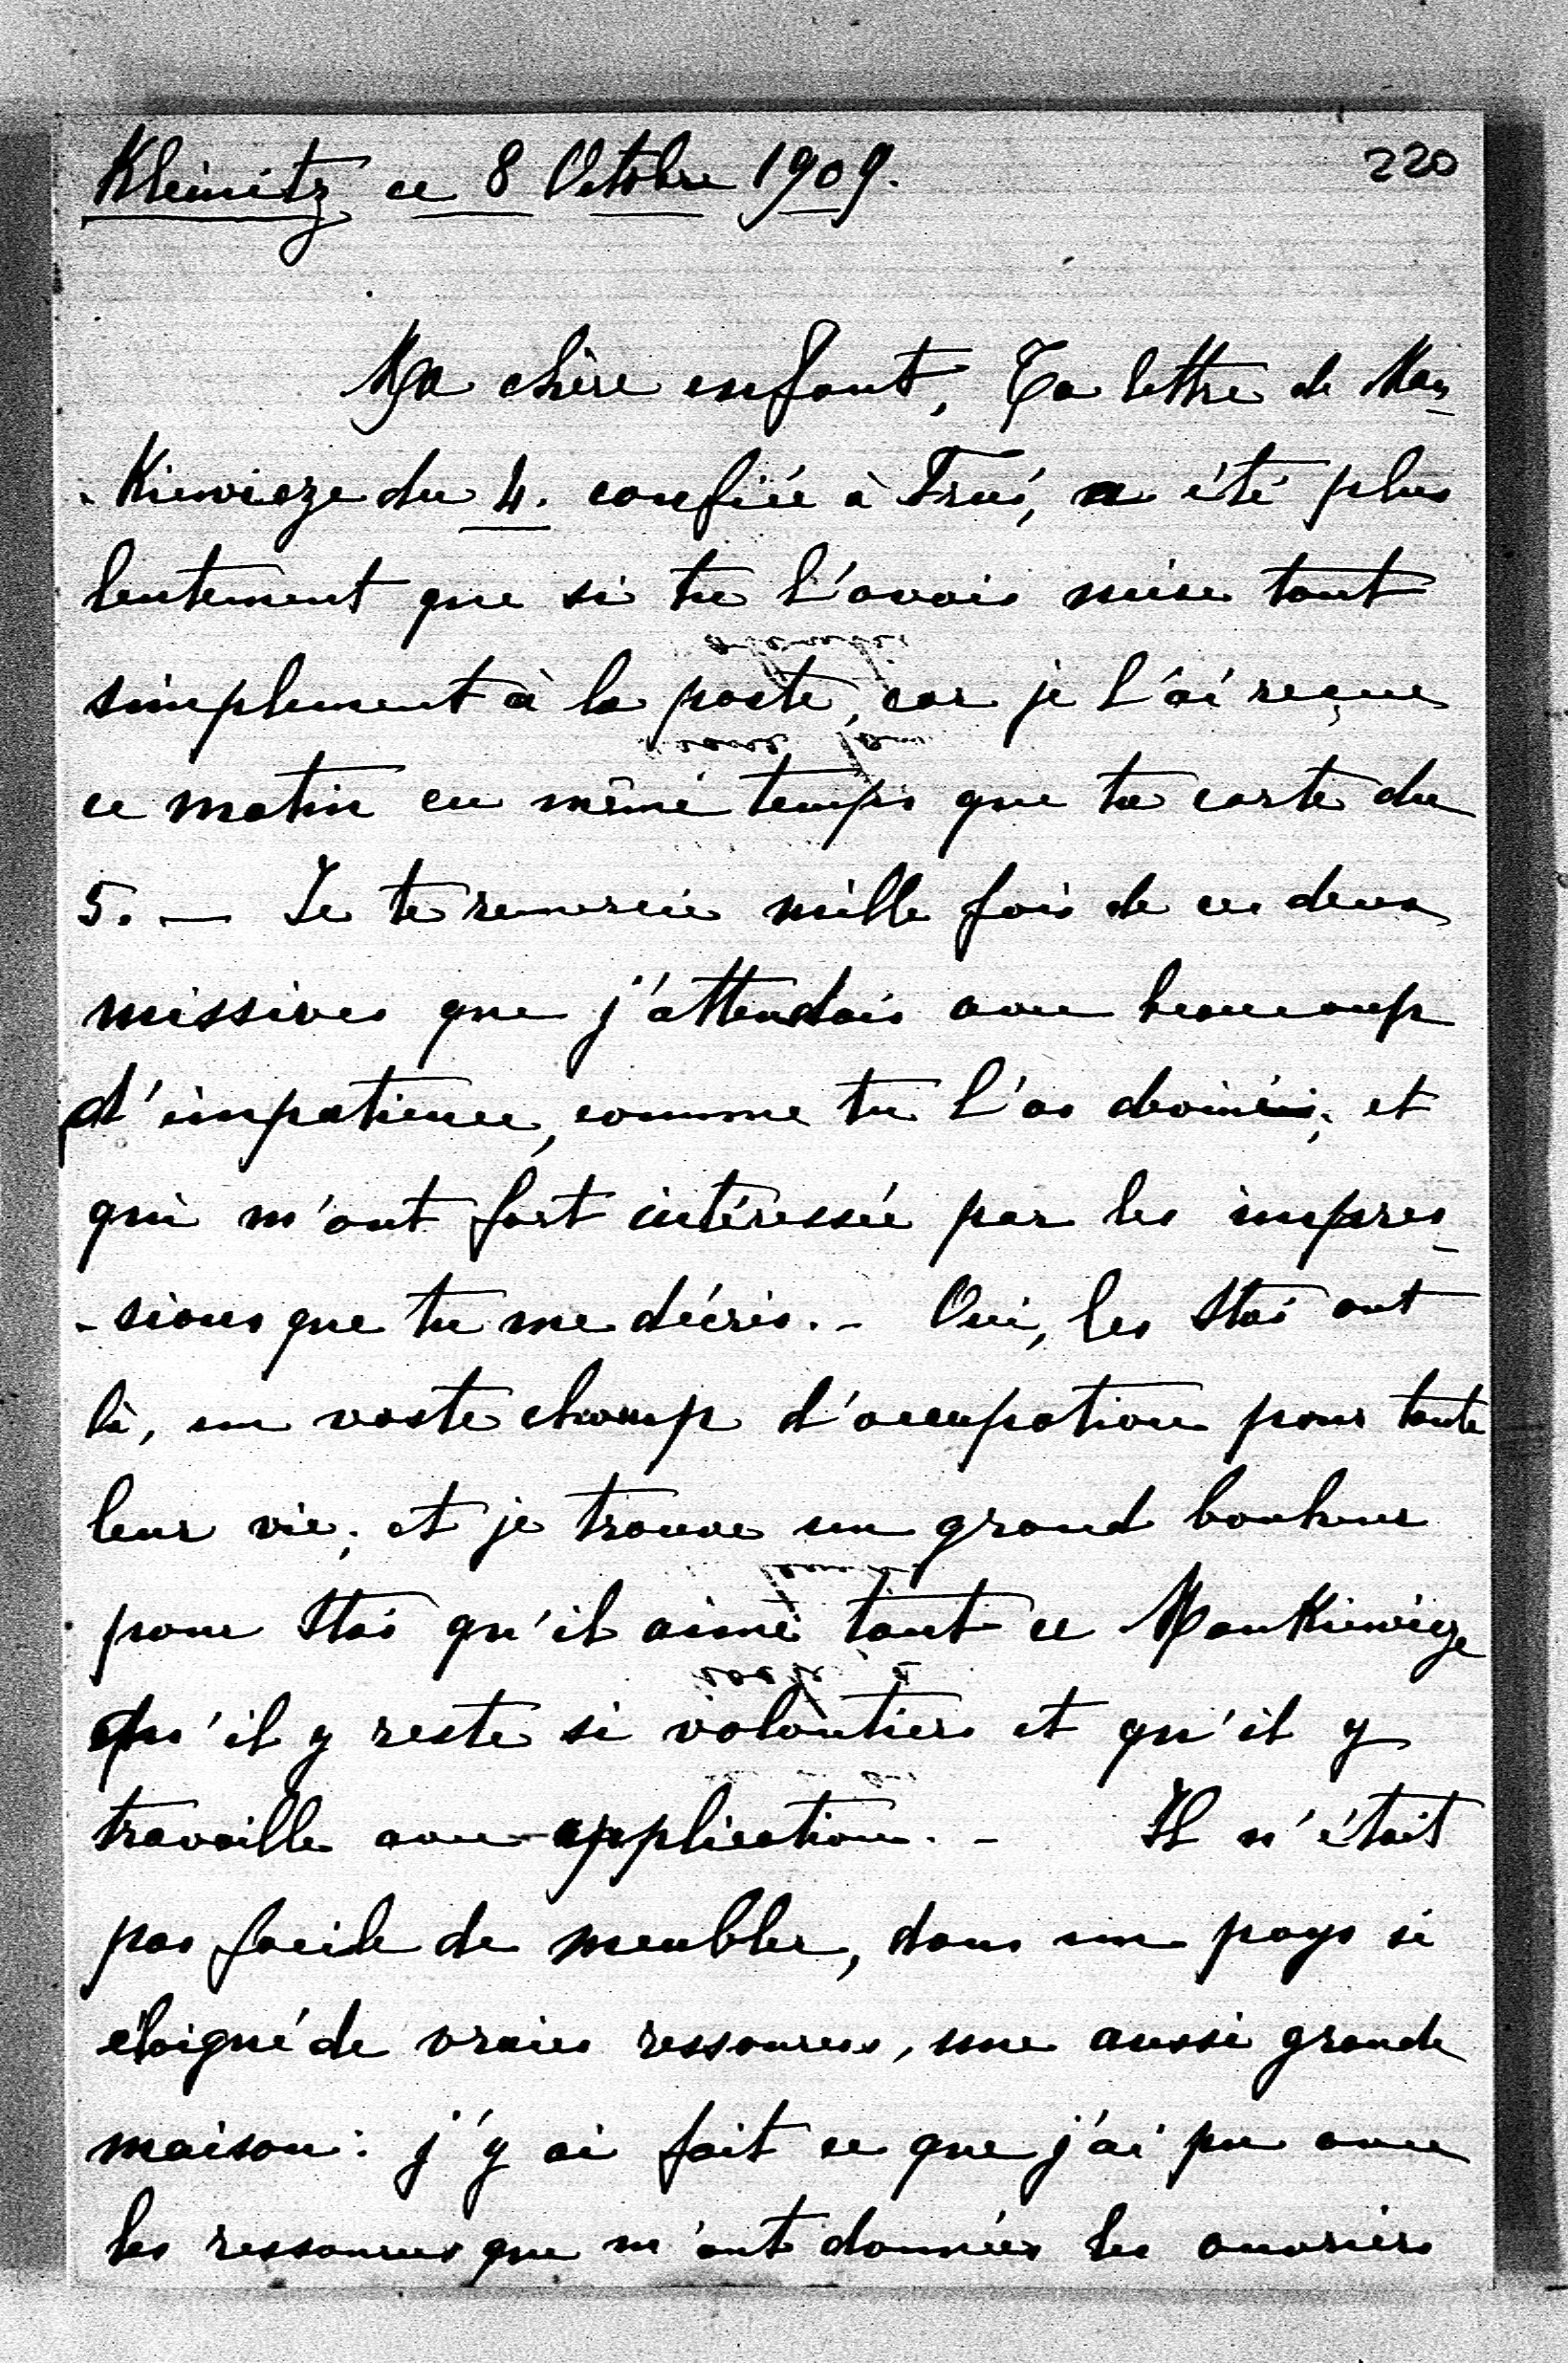 Kleinitz ce 8 Octobre 1909.
220
Ma chère enfant, Ta lettre de Man-
-Kiewicze du 4. confiée à a été plus
lentement que si tu l'avais mise tout
simplement à la poste, car je l'ai reçue
ce matin en même temps que ta carte du
5. — Je te remercie mille fois de ces deux
missives que j'attendais avec beaucoup
d'impatience, comme tu l'as deviné; et
qui m'ont fort intéressée par les impres-
-sions que tu me décris. - Oui, les Stas ont
là, un vaste champ d'occupation pour toute
leur vie; et je trouve un grand bonheur
pour Stas qu'il aime tant ce Mankiewicze
qu'il y reste si volontiers et qu'il y
travaille avec application. - Il n'était
pas facile de meubler, dans un pays si
éloigné de vraies ressources, une aussi grande
maison: j'y ai fait ce que j'ai pu avec
les ressources que m'ont données les ouvriers